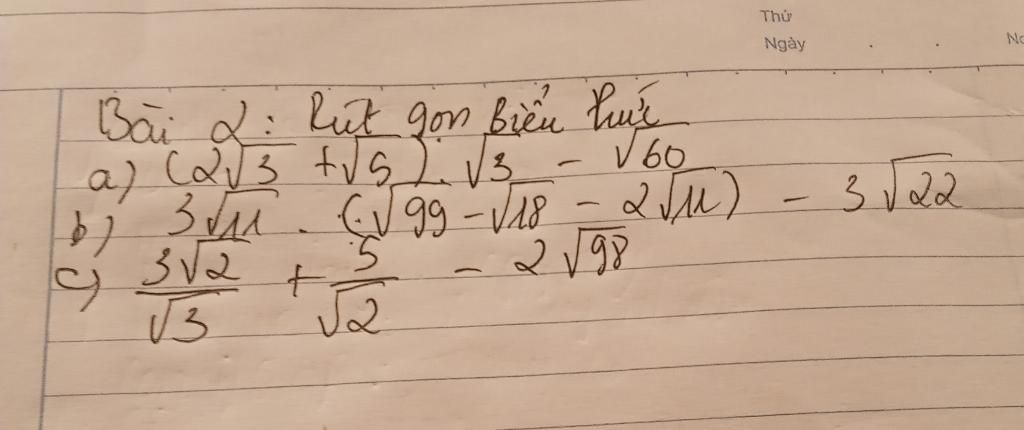 Thứ
Ngày . .
No
Bài 2: Rút gọn biểu thức
a) (2√3 + √5). √3 - √60
b) 3√11 . (√99 - √18 - 2√11) - 3√22
c) 3√2/√3 + 5/√2 - 2√98